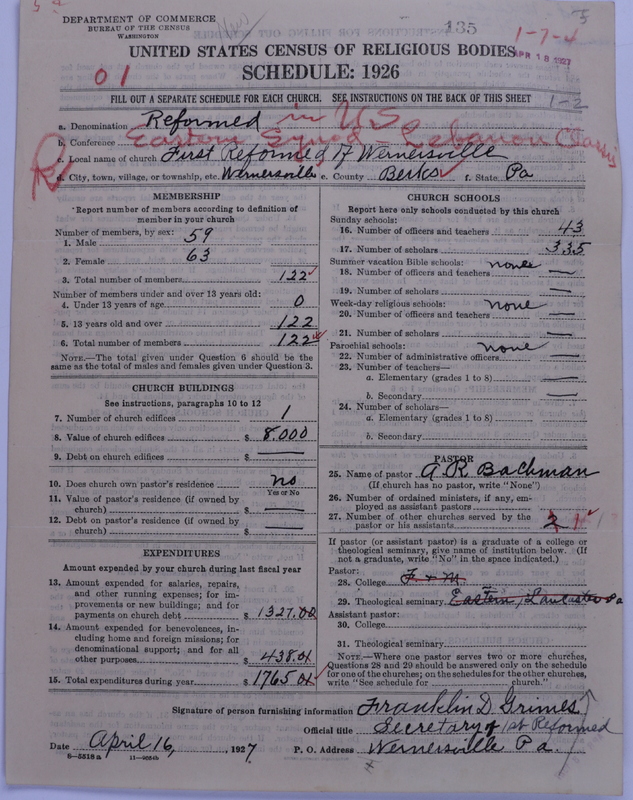 DEPARTMENT OF COMMERCE
BUREAU OF THE CENSUS
WASHINGTON
135
1-7-4
APR 18 1927
UNITED STATES CENSUS OF RELIGIOUS BODIES
SCHEDULE: 1926
01
FILL OUT A SEPARATE SCHEDULE FOR EACH CHURCH. SEE INSTRUCTIONS ON THE BACK OF THIS SHEET
1-2
a. Denomination Reformed in U S
b. Conference Eastern Synod Lebanon Classis
c. Local name of church First Reformed of Wernersville
d. City, town, village, or township, etc. Wernersville e. County Berks f. State Pa
MEMBERSHIP
Report number of members according to definition of
member in your church
Number of members, by sex:
1. Male 59
2. Female 63
3. Total number of members 122
Number of members under and over 13 years old:
4. Under 13 years of age 0
5. 13 years old and over 122
6. Total number of members 122
NOTE.—The total given under Question 6 should be the
same as the total of males and females given under Question 3.
CHURCH BUILDINGS
See instructions, paragraphs 10 to 12
7. Number of church edifices 1
8. Value of church edifices $ 8.000
9. Debt on church edifices $ —
10. Does church own pastor's residence? no
Yes or No
11. Value of pastor's residence (if owned by
church) $ —
12. Debt on pastor's residence (if owned by
church) $ —
EXPENDITURES
Amount expended by your church during last fiscal year
13. Amount expended for salaries, repairs,
and other running expenses; for im-
provements or new buildings; and for
payments on church debt $ 1327.00
14. Amount expended for benevolences, in-
cluding home and foreign missions; for
denominational support; and for all
other purposes $ 438.01
15. Total expenditures during year $ 1765.01
CHURCH SCHOOLS
Report here only schools conducted by this church
Sunday schools:
16. Number of officers and teachers 43
17. Number of scholars 335
Summer vacation Bible schools: none
18. Number of officers and teachers —
19. Number of scholars —
Week-day religious schools: none
20. Number of officers and teachers —
21. Number of scholars —
Parochial schools: none
22. Number of administrative officers —
23. Number of teachers—
a. Elementary (grades 1 to 8) —
b. Secondary —
24. Number of scholars—
a. Elementary (grades 1 to 8)
b. Secondary
PASTOR
25. Name of pastor A. R. Bachman
(If church has no pastor, write "None")
26. Number of ordained ministers, if any, em-
ployed as assistant pastors
27. Number of other churches served by the
pastor or his assistants 2 1
If pastor (or assistant pastor) is a graduate of a college or
theological seminary, give name of institution below. (If
not a graduate, write "No" in the space indicated.)
Pastor:
28. College F + M
29. Theological seminary Eastern, Lancaster Pa
Assistant pastor:
30. College
31. Theological seminary
NOTE.—Where one pastor serves two or more churches,
Questions 28 and 29 should be answered only on the schedule
for one of the churches; on the schedules for the other churches,
write "See schedule for church."
Signature of person furnishing information Franklin D. Grimes
Official title Secretary of 1st Reformed
Date April 16, 1927 P. O. Address Wernersville Pa.